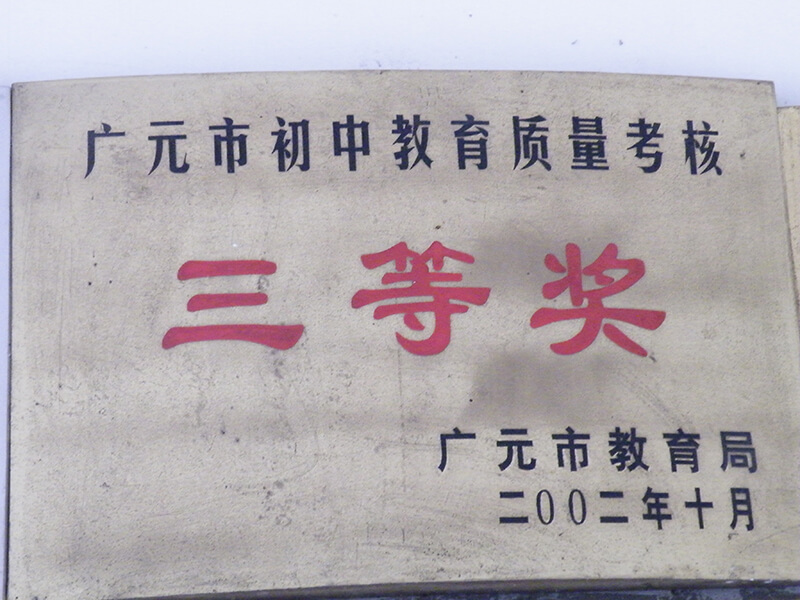 广元市初中教育质量考核
三等奖
广元市教育局
二00二年十月